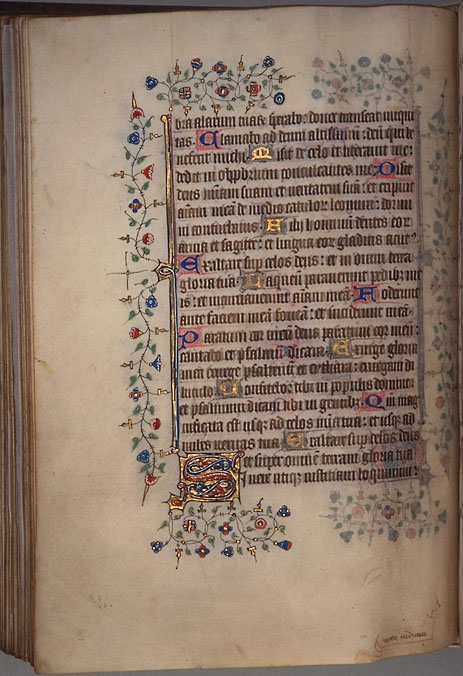 bra alarum tuaꝝ sperabo: donec transeat iniqui
tas. Clamabo ad deum altissimū: deū qui be
nefecit michi. Misit de celo et liberauit me:
dedit in opprobrium conculcantes me. Misit
deus miam̄ suam et ueritatem suā: et eripuit
aīam meā de medio catuloꝝ leonum: dormi
ui conturbatus. Filii hominum dentes eoꝝ
arma et sagitte: et lingua eoꝝ gladius acutꝰ
Exaltare sup̄ celos deus: et in omnem terrā
gloria tua. Laqueū parauerunt pedibꝫ me
is: et incuruauerunt aīam meā. Foderunt
ante faciem meā foueā: et inciderunt in eā
Paratum cor meū deus paratum cor meū:
cantabo et psalmū dicam. Exurge gloria
mea exurge psalteriū et cythara: exurgam di
luculo. Confitebor tibi in populis domine:
et psalmum dicam tibi in gentibꝫ. Qm̄ mag
nificata est usqꝫ ad celos mīa tua: et usqꝫ ad
nubes ueritas tua. Exaltare sup̄ celos deus
et super omnē terram gloria tua
Si uere utique iusticiam loquimini:
recta iudicate